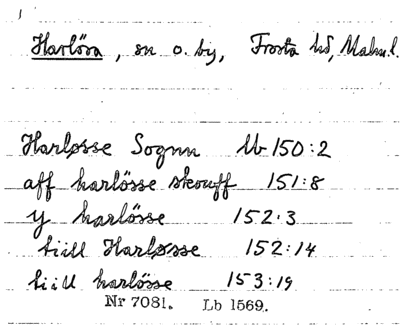 Harlösa, sn o. by, Frosta hd, Malm. l.
Harløsse Sognn Lb 150:2
aff harlösse skouff 151:8
y harlösse 152:3
tiill Harløsse 152:14
tiill harlösse 153:19
Nr 7081. Lb 1569.